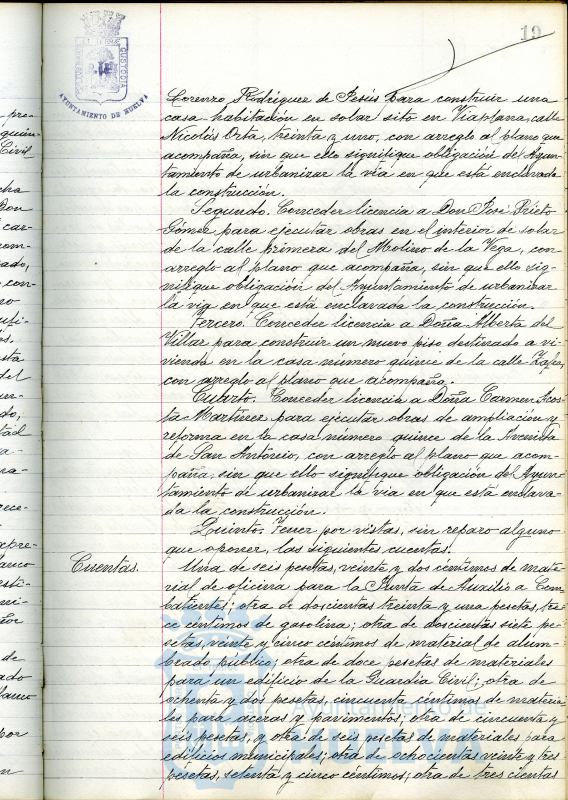 19
AYUNTAMIENTO DE HUELVA
Lorenzo Rodríguez de Jesús para construir una
casa habitación en solar sito en Viaplana, calle
Nicolás Orta, treinta y uno, con arreglo al plano que
acompaña, sin que ello signifique obligación del Ayun-
tamiento de urbanizar la vía en que está enclavada
la construcción.
Segundo. Conceder licencia a Don José Prieto
Gómez para ejecutar obras en el interior de solar
de la calle primera del Molino de la Vega, con
arreglo al plano que acompaña, sin que ello sig-
nifique obligación del Ayuntamiento de urbanizar
la vía en que está enclavada la construcción.
Tercero. Conceder licencia a Doña Alberta del
Villar para construir un nuevo piso destinado a vi-
vienda en la casa número quince de la calle
con arreglo al plano que acompaña.
Cuarto. Conceder licencia a Doña Carmen Acos-
ta Martínez para ejecutar obras de ampliación y
reforma en la casa número quince de la Avenida
de San Antonio, con arreglo al plano que acom-
paña, sin que ello signifique obligación del Ayun-
tamiento de urbanizar la vía en que está enclava-
da la construcción.
Quinto. Tener por vistas, sin reparo alguno
que oponer, las siguientes cuentas.
Cuentas.
Una de seis pesetas, veinte y dos céntimos de mate-
rial de oficina para la Junta de Auxilio a Com-
batientes; otra de doscientas treinta y una pesetas, tre-
ce céntimos de gasolina; otra de doscientas siete pe-
setas, veinte y cinco céntimos de material de alum-
brado público; otra de doce pesetas de materiales
para un edificio de la Guardia Civil; otra de
ochenta y dos pesetas, cincuenta céntimos de materia-
les para aceras y pavimentos; otra de cincuenta y
seis pesetas, y otra de seis pesetas de materiales para
edificios municipales; otra de ochocientas veinte y tres
pesetas, setenta y cinco céntimos; otra de tres cientas
Ayuntamiento de
HUELVA